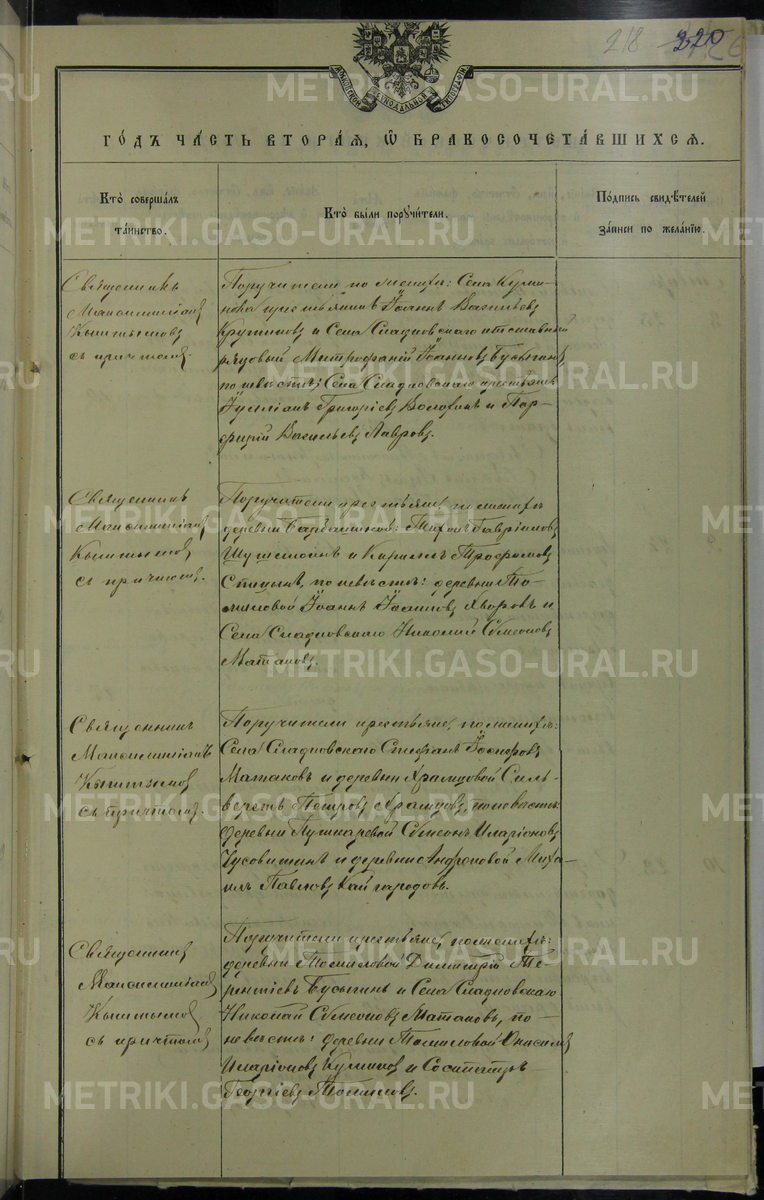 218 220
МОСКОВСКОЙ СѴНОДАЛЬНОЙ ТИПОГРАФІИ
ГОДЪ ЧАСТЬ ВТОРАЯ, Ѡ БРАКОСОЧЕТАВШИХСЯ.
Кто совершалъ таинство.
Кто были поручители.
Подпись свидѣтелей записи по желанію.
Священникъ
Максимиліанъ
Кыштымовъ
съ причтомъ.
Поручители по женихѣ: Села
крестьянинъ Іоаннъ Васильевъ
и Села Сладковскаго отставный
рядовый Митрофаній Іоанновъ Бусыгинъ,
по невѣстѣ: Села Сладковскаго крестьяне
Григоріевъ и Пар-
фирій Васильевъ Лавровъ.
Священникъ
Максимиліанъ
Кыштымовъ
съ причтомъ.
Поручители крестьяне, по женихѣ
деревни Тихонъ Гавріиловъ
и Кириллъ Трофимовъ
Спицынъ, по невѣстѣ: деревни То-
миловой Іоаннъ Іоанновъ и
Села Сладковскаго Николай Сѵмеоновъ
Матаковъ.
Священникъ
Максимиліанъ
Кыштымовъ
съ причтомъ.
Поручители крестьяне, по женихѣ:
Села Сладковскаго Стефанъ Іосифовъ
Матаковъ и деревни Храмцовой Силь-
верстъ Петровъ Храмцовъ, по невѣстѣ:
деревни Пушкаревой Сѵмеонъ Иларіоновъ
Чусовитинъ и деревни Андроновой Миха-
илъ Павловъ Кайгородовъ.
Священникъ
Максимиліанъ
Кыштымовъ
съ причтомъ
Поручители крестьяне, по женихѣ:
деревни Томиловой Димитрій Те-
рентіевъ Бусыгинъ и Села Сладковскаго
Николай Сѵмеоновъ Матаковъ, по
невѣстѣ: деревни Томиловой
Иларіоновъ и Сосипатръ
Георгіевъ Томиловъ.
METRIKI.GASO-URAL.RU